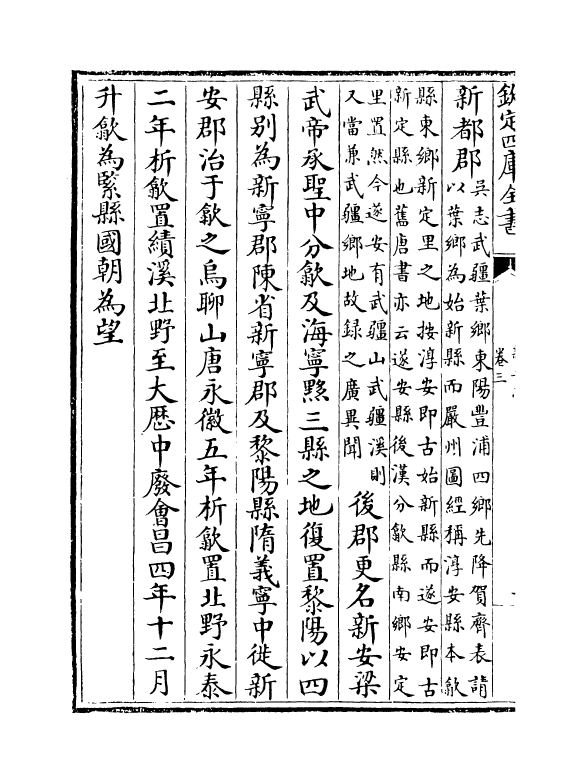 欽定四庫全書
卷三
新都郡吳志武疆葉鄉東陽豐浦四鄉先降賀齊表請
以葉鄉為始新縣而嚴州圖經稱淳安縣本歙
縣東鄉新定里之地按淳安即古始新縣而遂安即古
新定縣也舊唐書亦云遂安縣後漢分歙縣南鄉安定
里置然今遂安有武疆山武疆溪則
又當兼武疆鄉地故録之廣異聞
後郡更名新安梁
武帝承聖中分歙及海寧黟三縣之地復置黎陽以四
縣别為新寧郡陳省新寧郡及黎陽縣隋義寧中徙新
安郡治于歙之烏聊山唐永徽五年析歙置北野永泰
二年析歙置績溪北野至大歴中廢會昌四年十二月
升歙為緊縣國朝為望